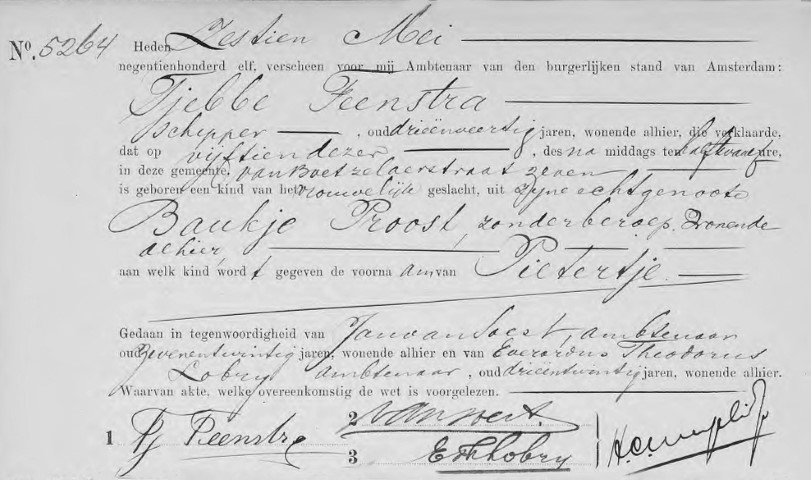 No. 5264
Heden Zestien Mei
negentienhonderd elf, verscheen voor mij Ambtenaar van den burgerlijken stand van Amsterdam:
Tjebbe Feenstra
schipper, oud drieënveertig jaren, wonende alhier, die verklaarde,
dat op vijftien dezer, des na middags ten half vijf ure,
in deze gemeente, van Boetzelaerstraat zeven
is geboren een kind van het vrouwelijk geslacht, uit zijne echtgenoote
Baukje Proost, zonder beroep, wonende
alhier,
aan welk kind wordt gegeven de voornaam van Pietertje.
Gedaan in tegenwoordigheid van Jan van Soest, ambtenaar
oud zevenentwintig jaren, wonende alhier en van Everardus Theodorus
Lobry ambtenaar, oud drieëntwintig jaren, wonende alhier.
Waarvan akte, welke overeenkomstig de wet is voorgelezen.
1 Tj Feenstra 2 JvanSoest.
3 EThLobry